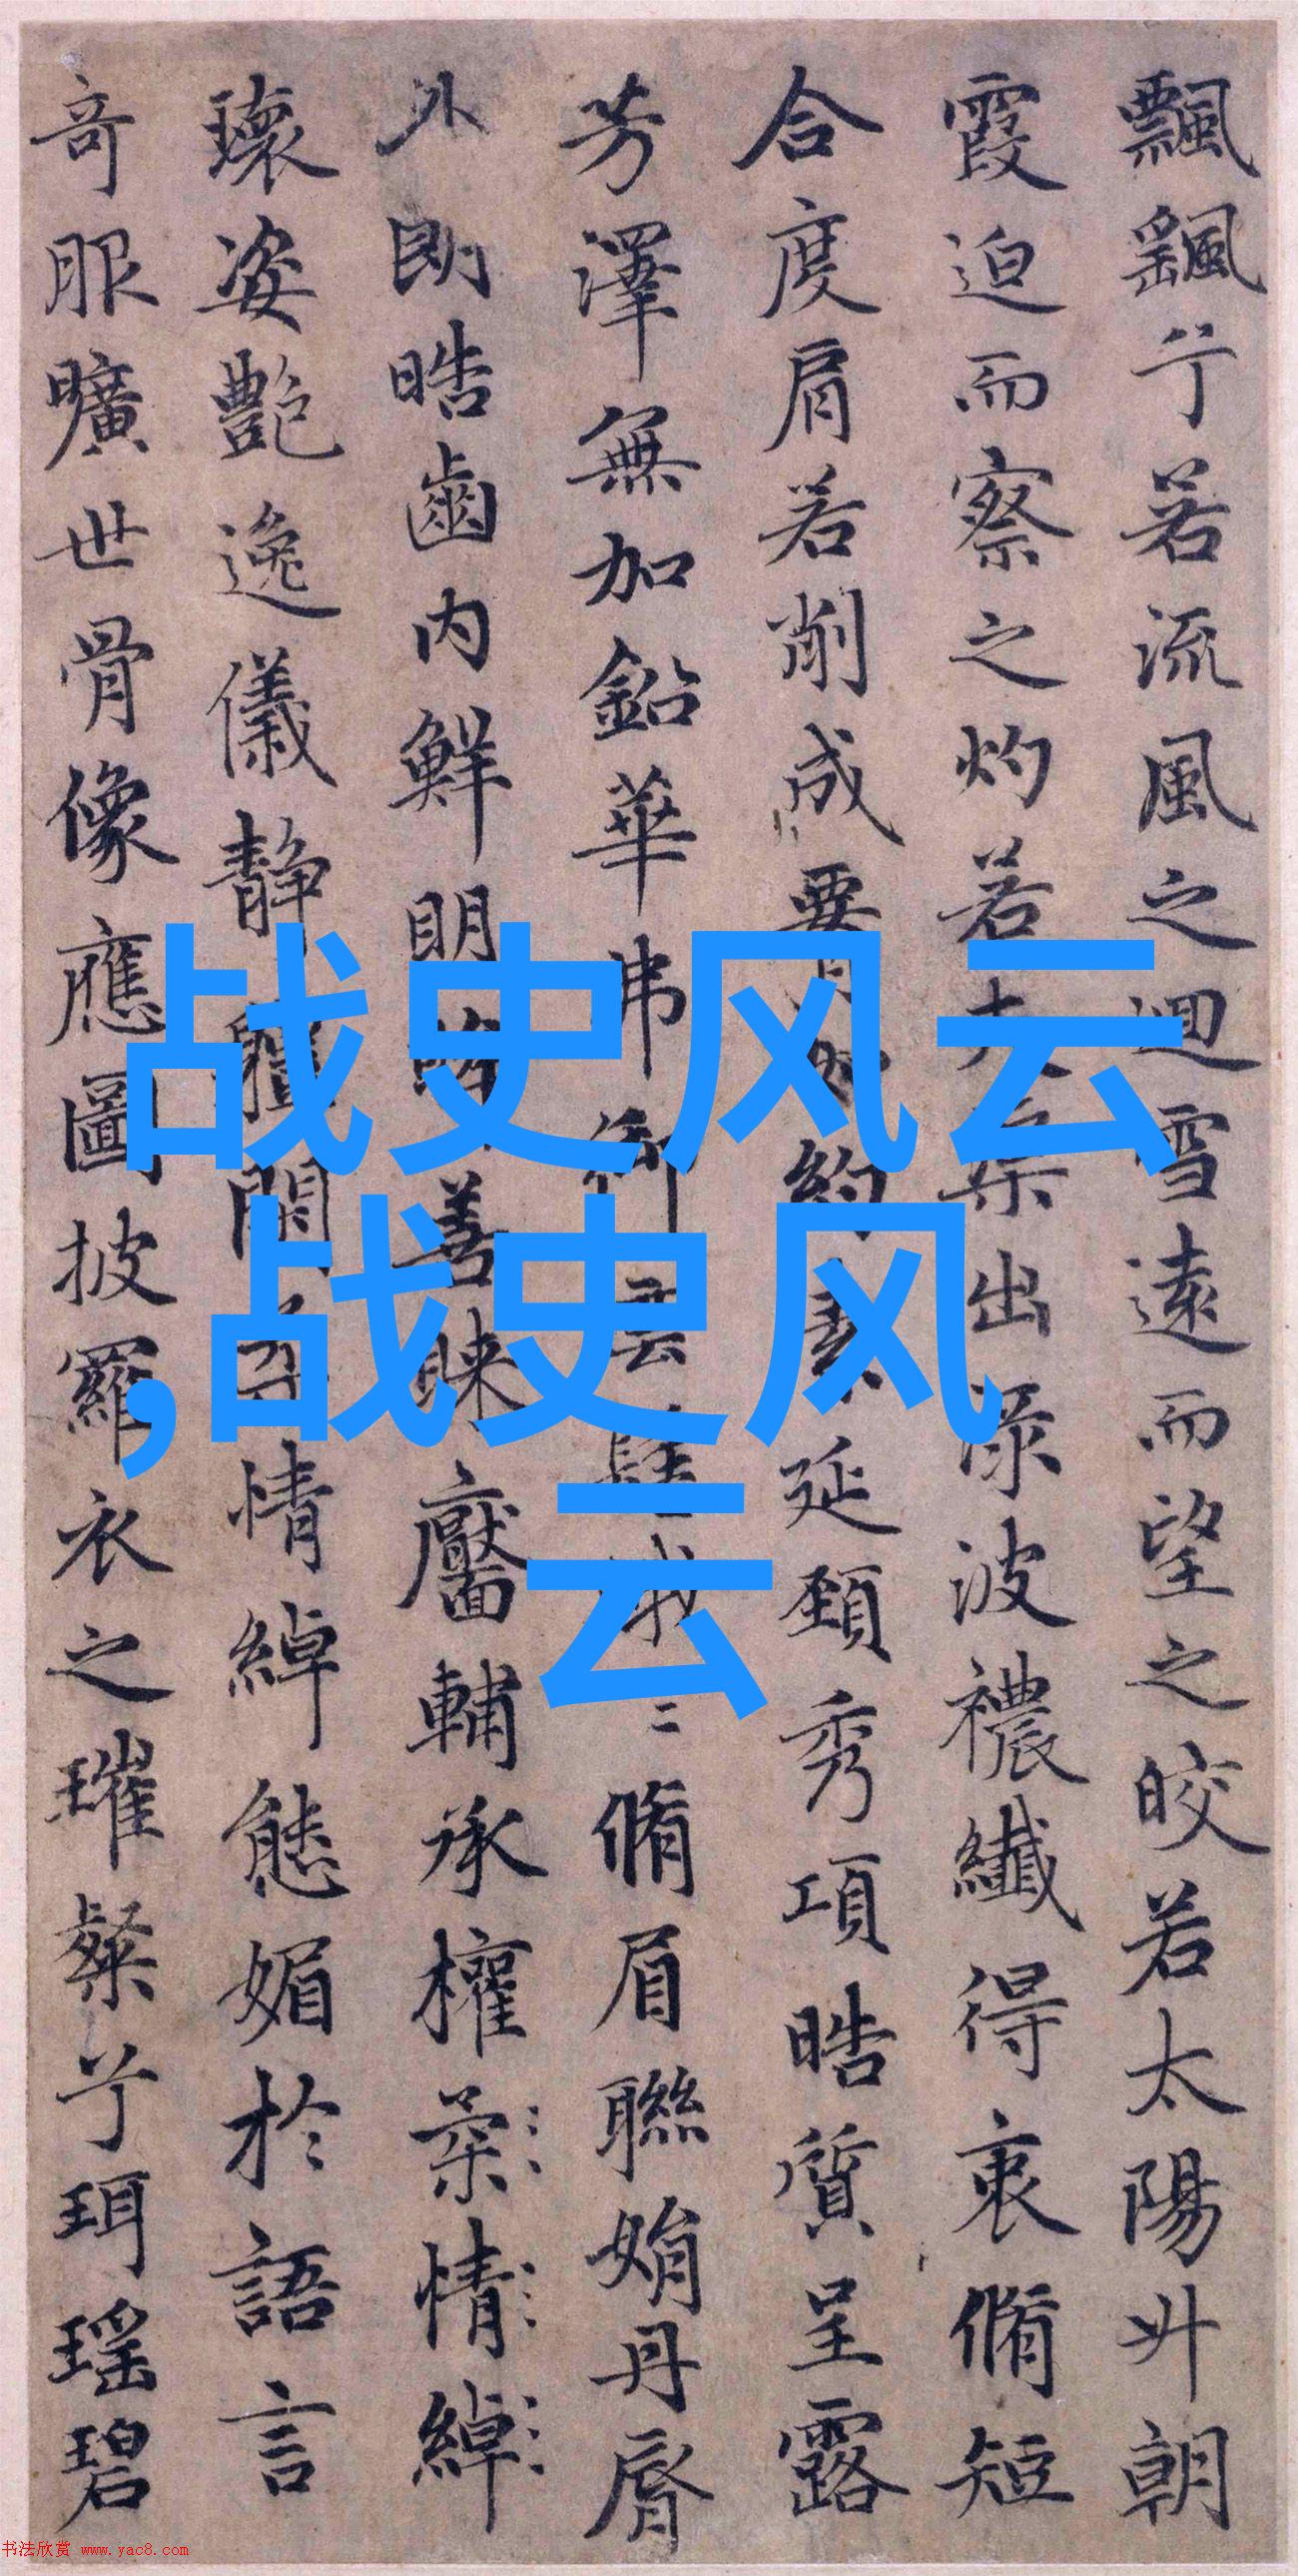 飄颻兮若流風之迴雪遠而望之皎若太陽升朝
霞迫而察之灼若夫蕖出淥波襛纖得衷脩短
合度肩若削成要約素延頸秀項晧質呈露
芳澤無加鉛華弗御雲髻峩〻脩眉聯娟丹脣
外朗晧齒內鮮明眸善睞靨輔承權柔情綽
瓌姿艷逸儀静體閑柔情綽態媚於語言
奇服曠世骨像應圖披羅衣之璀粲兮珥瑤碧
战史风云
,战史风
云
书法欣赏 www.yac8.com